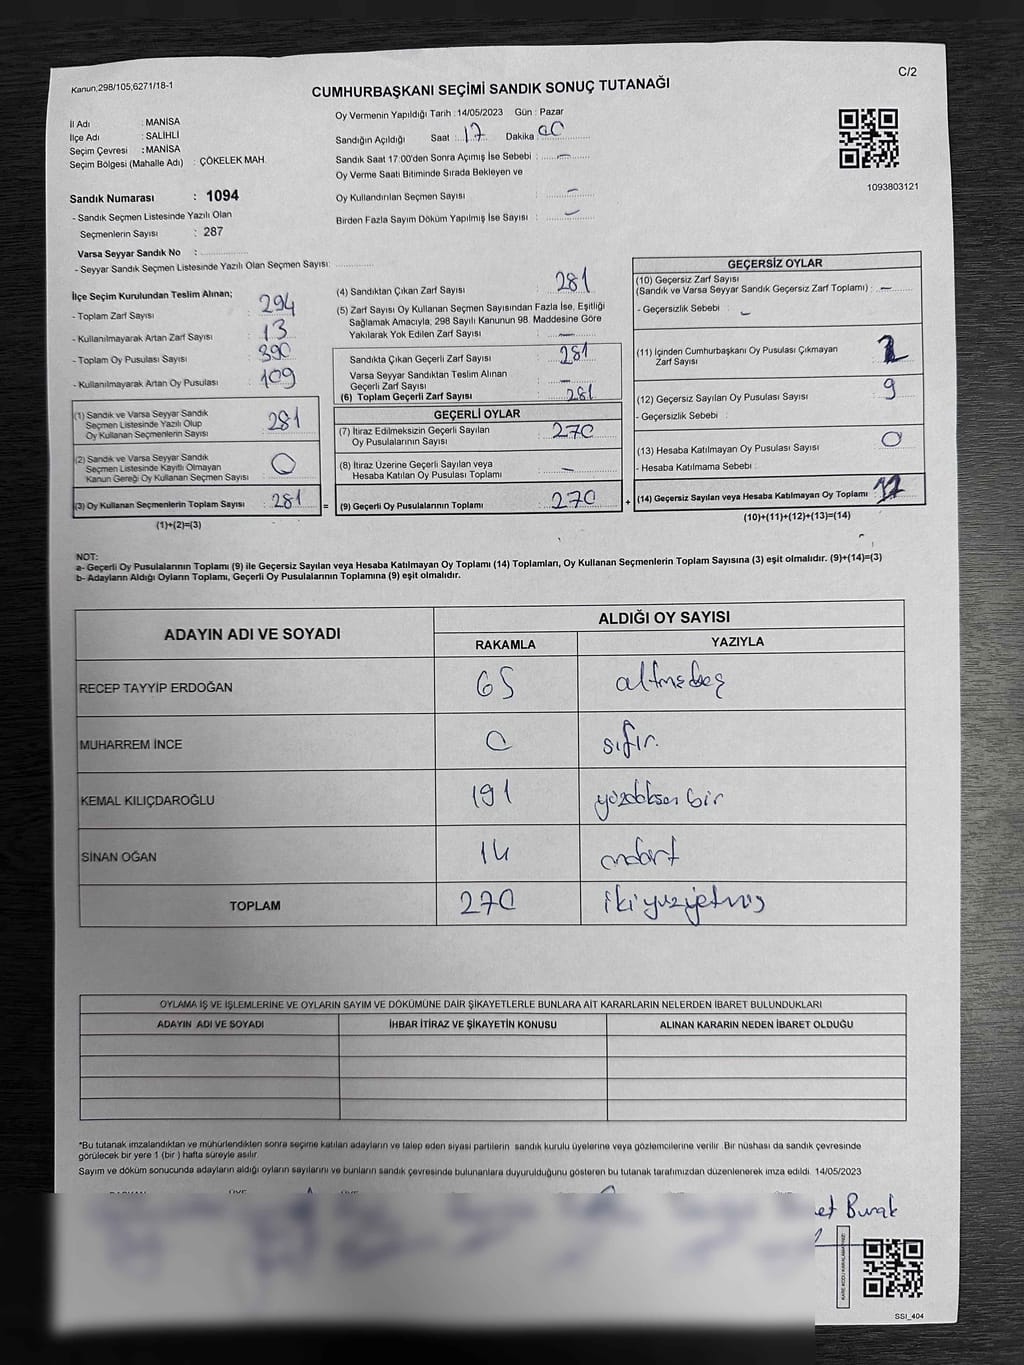 Kanun,298/105,6271/18-1
C/2
CUMHURBAŞKANI SEÇİMİ SANDIK SONUÇ TUTANAĞI
İl Adı : MANİSA
İlçe Adı : SALİHLİ
Seçim Çevresi : MANİSA
Seçim Bölgesi (Mahalle Adı) : ÇÖKELEK MAH.
Oy Vermenin Yapıldığı Tarih : 14/05/2023 Gün : Pazar
Sandığın Açıldığı Saat : 17 Dakika 00
Sandık Saat 17:00'den Sonra Açımış İse Sebebi : —
Oy Verme Saati Bitiminde Sırada Bekleyen ve
Oy Kullandırılan Seçmen Sayısı : —
Birden Fazla Sayım Döküm Yapılmış İse Sayısı : —
1093803121
Sandık Numarası : 1094
- Sandık Seçmen Listesinde Yazılı Olan
Seçmenlerin Sayısı : 287
Varsa Seyyar Sandık No :
- Seyyar Sandık Seçmen Listesinde Yazılı Olan Seçmen Sayısı:
İlçe Seçim Kurulundan Teslim Alınan;
- Toplam Zarf Sayısı : 294
- Kullanılmayarak Artan Zarf Sayısı : 13
- Toplam Oy Pusulası Sayısı : 390
- Kullanılmayarak Artan Oy Pusulası : 109
(1) Sandık ve Varsa Seyyar Sandık
Seçmen Listesinde Yazılı Olup
Oy Kullanan Seçmenlerin Sayısı : 281
(2) Sandık ve Varsa Seyyar Sandık
Seçmen Listesinde Kayıtlı Olmayan
Kanun Gereği Oy Kullanan Seçmen Sayısı : 0
(3) Oy Kullanan Seçmenlerin Toplam Sayısı : 281
(1)+(2)=(3)
=
(4) Sandıktan Çıkan Zarf Sayısı : 281
(5) Zarf Sayısı Oy Kullanan Seçmen Sayısından Fazla İse, Eşitliği
Sağlamak Amacıyla; 298 Sayılı Kanunun 98. Maddesine Göre
Yakılarak Yok Edilen Zarf Sayısı : —
Sandıkta Çıkan Geçerli Zarf Sayısı : 281
Varsa Seyyar Sandıktan Teslim Alınan
Geçerli Zarf Sayısı : —
(6) Toplam Geçerli Zarf Sayısı : 281
GEÇERLİ OYLAR
(7) İtiraz Edilmeksizin Geçerli Sayılan
Oy Pusulalarının Sayısı : 270
(8) İtiraz Üzerine Geçerli Sayılan veya
Hesaba Katılan Oy Pusulası Toplamı : —
(9) Geçerli Oy Pusulalarının Toplamı : 270
+
GEÇERSİZ OYLAR
(10) Geçersiz Zarf Sayısı
(Sandık ve Varsa Seyyar Sandık Geçersiz Zarf Toplamı) : —
- Geçersizlik Sebebi : —
(11) İçinden Cumhurbaşkanı Oy Pusulası Çıkmayan
Zarf Sayısı : 2
(12) Geçersiz Sayılan Oy Pusulası Sayısı : 9
- Geçersizlik Sebebi :
(13) Hesaba Katılmayan Oy Pusulası Sayısı : 0
- Hesaba Katılmama Sebebi :
(14) Geçersiz Sayılan veya Hesaba Katılmayan Oy Toplamı :
(10)+(11)+(12)+(13)=(14)
NOT:
a- Geçerli Oy Pusulalarının Toplamı (9) ile Geçersiz Sayılan veya Hesaba Katılmayan Oy Toplamı (14) Toplamları, Oy Kullanan Seçmenlerin Toplam Sayısına (3) eşit olmalıdır. (9)+(14)=(3)
b- Adayların Aldığı Oyların Toplamı, Geçerli Oy Pusulalarının Toplamına (9) eşit olmalıdır.
ADAYIN ADI VE SOYADI
ALDIĞI OY SAYISI
RAKAMLA YAZIYLA
RECEP TAYYİP ERDOĞAN 65 altmışbeş
MUHARREM İNCE 0 sıfır.
KEMAL KILIÇDAROĞLU 191 yüzdoksan bir
SİNAN OĞAN 14 ondört
TOPLAM 270 ikiyüzyetmiş
OYLAMA İŞ VE İŞLEMLERİNE VE OYLARIN SAYIM VE DÖKÜMÜNE DAİR ŞİKAYETLERLE BUNLARA AİT KARARLARIN NELERDEN İBARET BULUNDUKLARI
ADAYIN ADI VE SOYADI İHBAR İTİRAZ VE ŞİKAYETİN KONUSU ALINAN KARARIN NEDEN İBARET OLDUĞU
*Bu tutanak imzalandıktan ve mühürlendikten sonra seçime katılan adayların ve talep eden siyasi partilerin sandık kurulu üyelerine veya gözlemcilerine verilir. Bir nüshası da sandık çevresinde
görülecek bir yere 1 (bir) hafta süreyle asılır.
Sayım ve döküm sonucunda adayların aldığı oyların sayılarını ve bunların sandık çevresinde bulunanlara duyurulduğunu gösteren bu tutanak tarafımızdan düzenlenerek imza edildi. 14/05/2023
et Burak
SSI_404